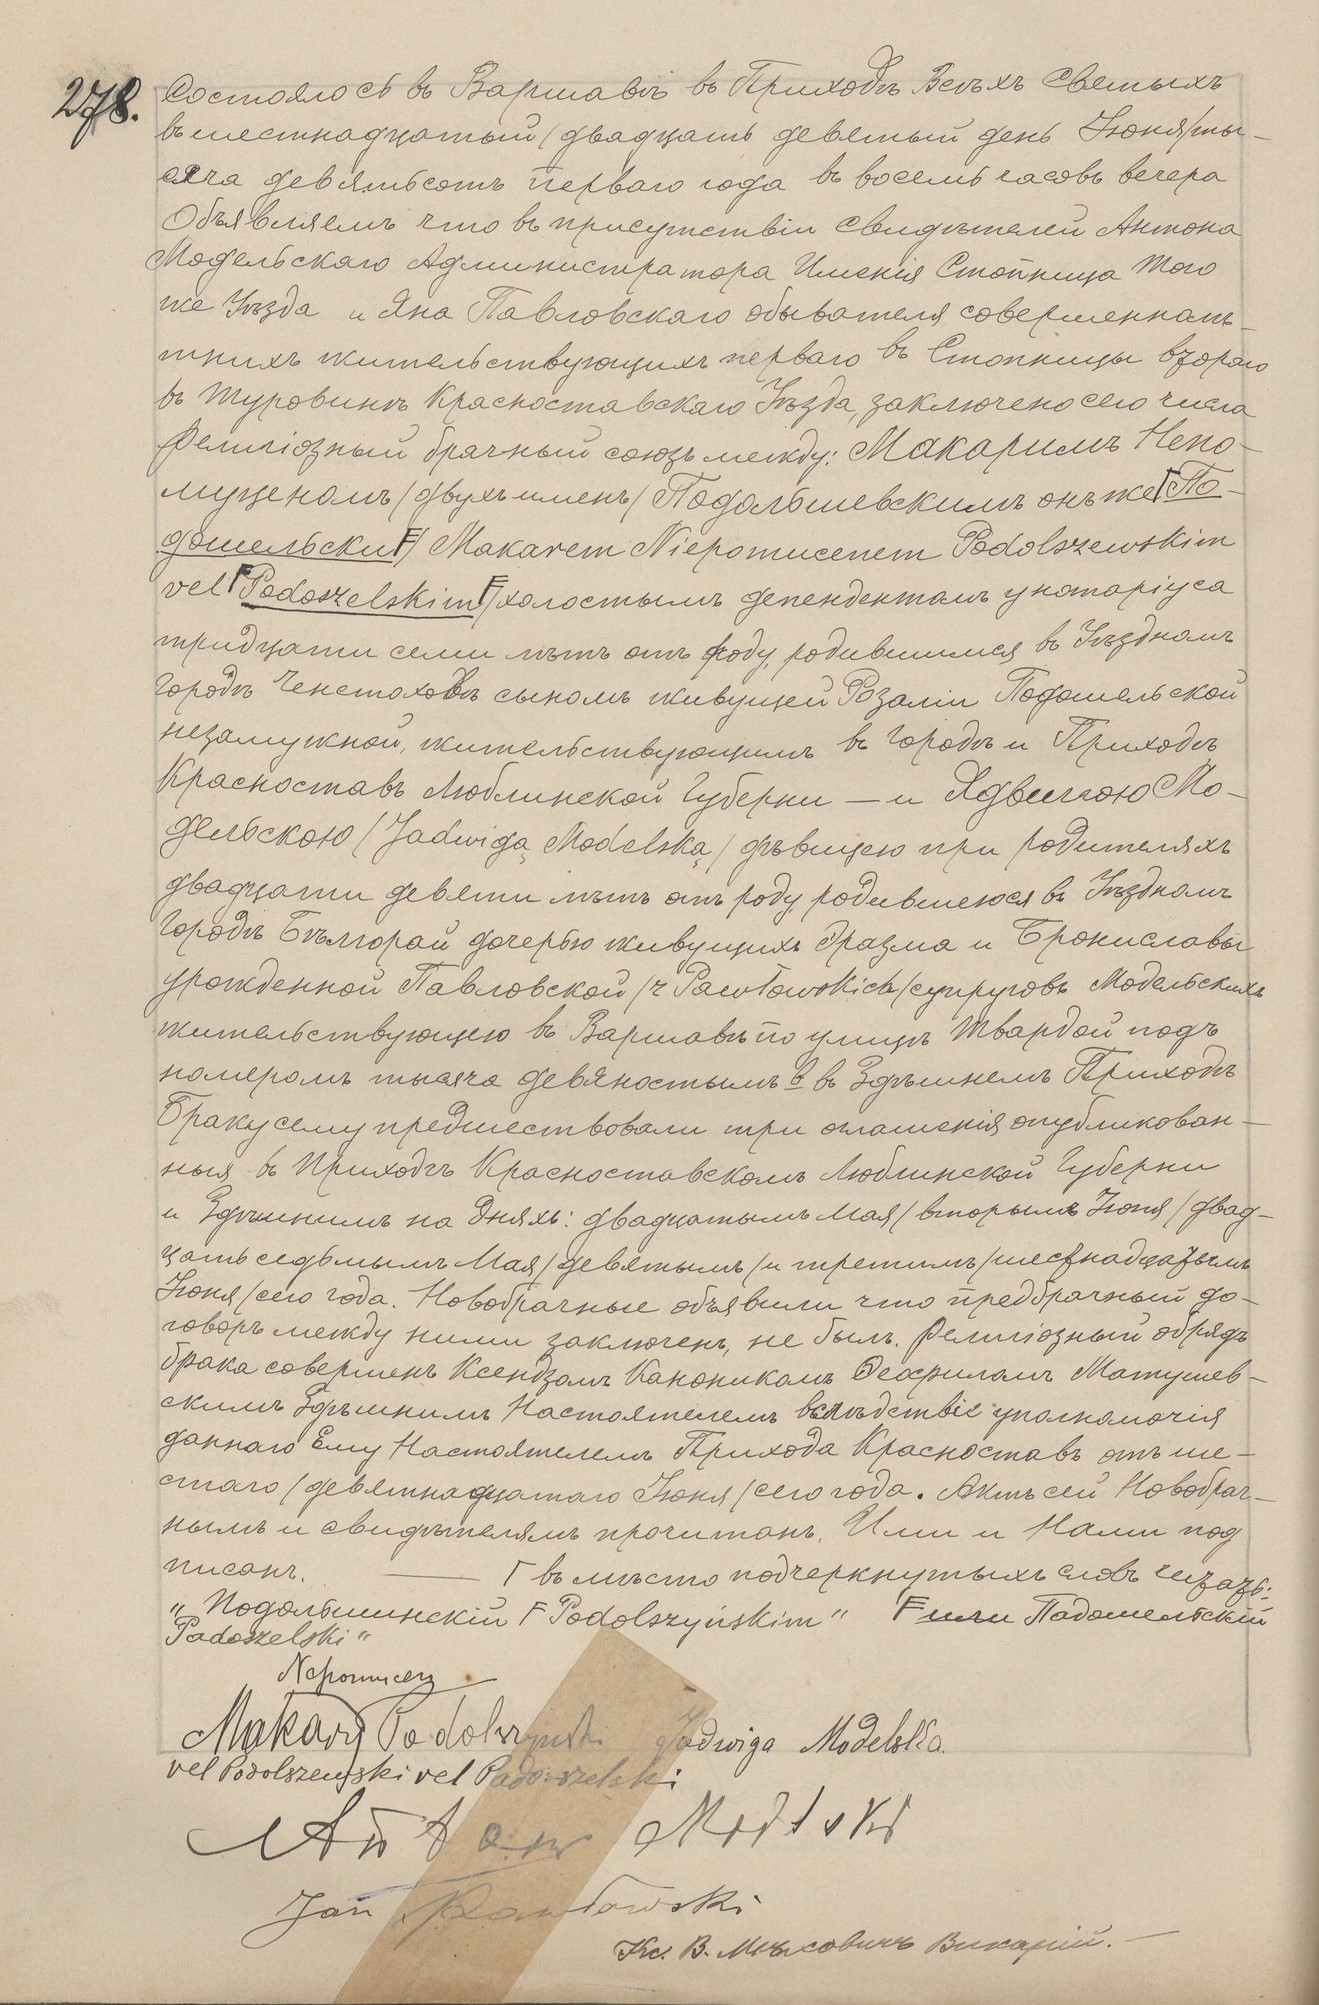 278.
Состоялось въ Варшавѣ въ Приходѣ Всѣхъ Святыхъ
въ шестнадцатый / двадцать девятый день Іюня / ты-
сяча девятьсотъ перваго года въ восемь часовъ вечера
Объявляемъ что въ присутствіи свидѣтелей Антона
Модельскаго Администратора Именія Стопница того
же Уѣзда и Яна Павловскаго обывателя совершеннолѣ-
тнихъ жительствующихъ перваго въ Стопницы втораго
въ Туровинѣ Красноставскаго Уѣзда, заключено сего числа
религіозный брачный союзъ между: Макаримъ Непо-
муценомъ / двухъ именъ / Подольшевскимъ онъ же Г По-
дошельски F / Makarem Niepomucenem Podolszewskim
vel Г Podoszelskim F / холостымъ депендентомъ у нотаріуса
тридцати семи лѣтъ отъ роду, родившимся въ Уѣздномъ
Городѣ Ченстоховѣ сыномъ живущей Розаліи Подошельской
незамужной, жительствующимъ въ Городѣ и Приходѣ
Красноставъ Люблинской Губерни — и Ядвигою Мо-
дельскою / Jadwigą Modelską / дѣвицею при родителяхъ
двадцати девяти лѣтъ отъ роду, родившеюся въ Уѣздномъ
Городѣ Бѣлгорай дочерью живущихъ Эразма и Брониславы
урожденной Павловской / z Pawłowskich / супруговъ Модельскихъ
жительствующею въ Варшавѣ по улицѣ Твардой подъ
номеромъ тысяча девяностымъ в въ Здѣшнемъ Приходѣ
Браку сему предшествовали три оглашенія опубликован-
ныя въ Приходѣ Красноставскомъ Люблинской Губерни
и Здѣшнимъ на Дняхъ: двадцатымъ Мая / вторымъ Іюня / двад-
цать седьмымъ Мая / девятымъ / и третимъ / шестнадцатымъ
Іюня / сего года. Новобрачные объявили что предбрачный до-
говоръ между ними заключенъ, не былъ. Религіозный обрядъ
брака совершенъ Ксендзомъ Каноникомъ Феофиломъ Матушев-
скимъ Здѣшнимъ Настоятелемъ вслѣдствіе уполномочія
даннаго Ему Настоятелемъ Прихода Красноставъ отъ ше-
стаго / девятнадцатаго Іюня / сего года. Актъ сей Новобрач-
нымъ и свидѣтелямъ прочитанъ, Ими и Нами под
писанъ. — Г въ мѣсто подчеркнутыхъ словъ читать:
„Подольшинскій F Podolszyńskim" F или Падошельскій
Padoszelski"
Nepomucen
Makary Podolszyński Jadwiga Modelska.
vel Podolszewski vel Padoszelski
Antoni Modelski
Jan Pawłowski
Кс. В. Викарій. —